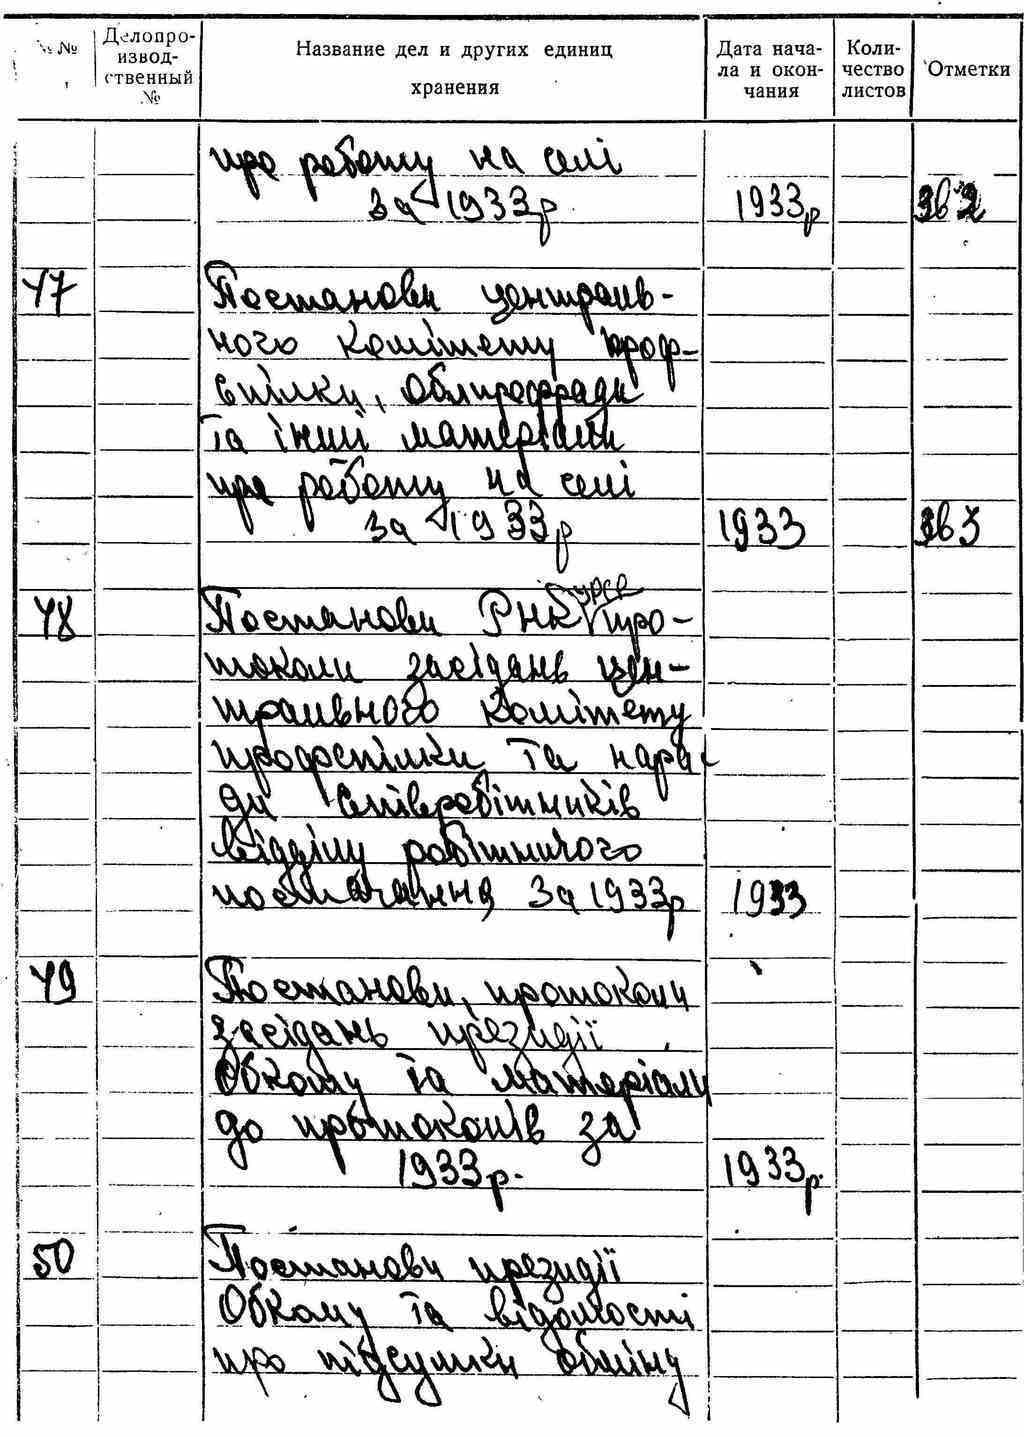 №№ Делопро-извод-ственный № Название дел и других единиц хранения Дата нача-ла и окон-чания Коли-чество листов Отметки
про роботу на селі
за 1933р 1933р
47 Постанови централь-
ного комітету проф-
спілки, облпрофради
та інші матеріали
про роботу на селі
за 1933р 1933
48 Постанови РНК УРСР про-
токоли засідань цен-
трального комітету
профспілки та нара-
ди співробітників
відділу робітничого
постачання за 1933р 1933
49 Постанови, протоколи
засідань президії
Обкому та матеріали
до протоколів за
1933р. 1933р.
50 Постанови президії
Обкому та відомості
про підсумки обміну